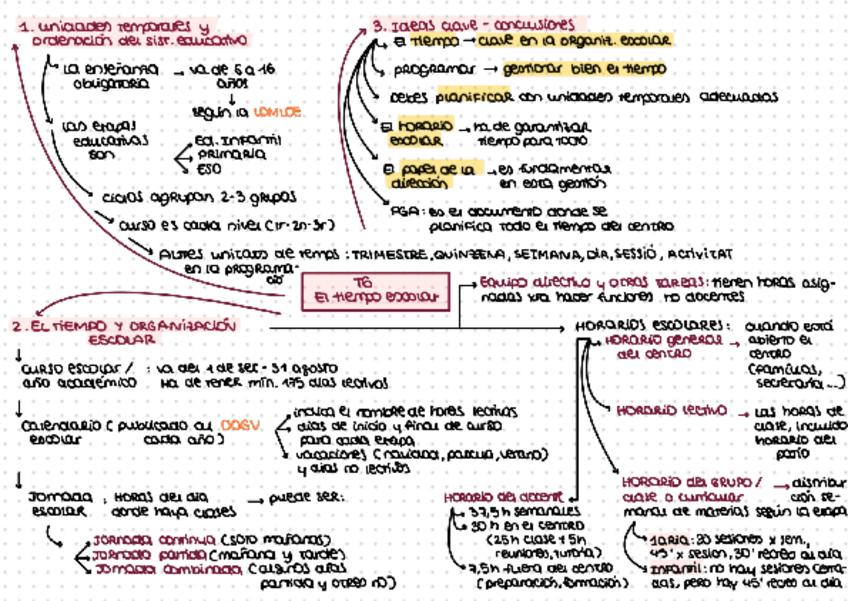 1. unidades temporales y
ordenación del sist. educativo
La enseñanza → va de 6 a 16
obligatoria años
↓
según la LOMLOE
Las etapas
educativas
son
Ed. Infantil
PRIMARIA
ESO
ciclos agrupan 2-3 grupos
curso es cada nivel (1r-2n-3r)
ALTRES unitats de temps: TRIMESTRE, QUINZENA, SETMANA, DIA, SESSIÓ, ACTIVITAT
en la programa-
ció
3. Ideas clave - conclusiones
El tiempo → clave en la organiz. escolar
programar → gestionar bien el tiempo
Debes planificar con unidades temporales adecuadas
El HORARIO → ha de garantizar
escolar tiempo para todo
El papel de la → es fundamental
dirección en esta gestión
PGA: es el documento donde se
planifica todo el tiempo del centro
T6
El tiempo escolar
Equipo directivo y otras tareas: tienen horas asig-
nadas xra hacer funciones no docentes
2. EL TIEMPO Y ORGANIZACIÓN
ESCOLAR
curso escolar / : va del 1 de set - 31 agosto
año académico Ha de tener mín. 175 días lectivos
Calendario (publicado al DOGV
escolar cada año)
indica el nombre de hores lectivas
días de inicio y final de curso
para cada etapa
vacaciones (navidad, pascua, verano)
y días no lectivos
Jornada : Horas del día → puede ser:
escolar donde haya clases
Jornada continua (solo mañanas)
Jornada partida (mañana y tarde)
Jornada combinada (algunos días
partida y otros no)
HORARIOS ESCOLARES:
HORARIO general → cuando está
del centro abierto el
centro
(familias,
secretaría...)
HORARIO lectivo → Las horas de
clase, incluido
horario del
patio
HORARIO del GRUPO / → distribu-
clase o curricular ción se-
manal de materias según la etapa
1aria: 30 sesiones x sem,
45' x sesion, 30' recreo al día
Infantil: no hay sesiones cerra-
das, pero hay 45' recreo al día
HORARIO del docente
37,5h semanales
30 h en el centro
(25h clase + 5h
reuniones, tutoría)
7,5h fuera del centro
(preparación, formación)